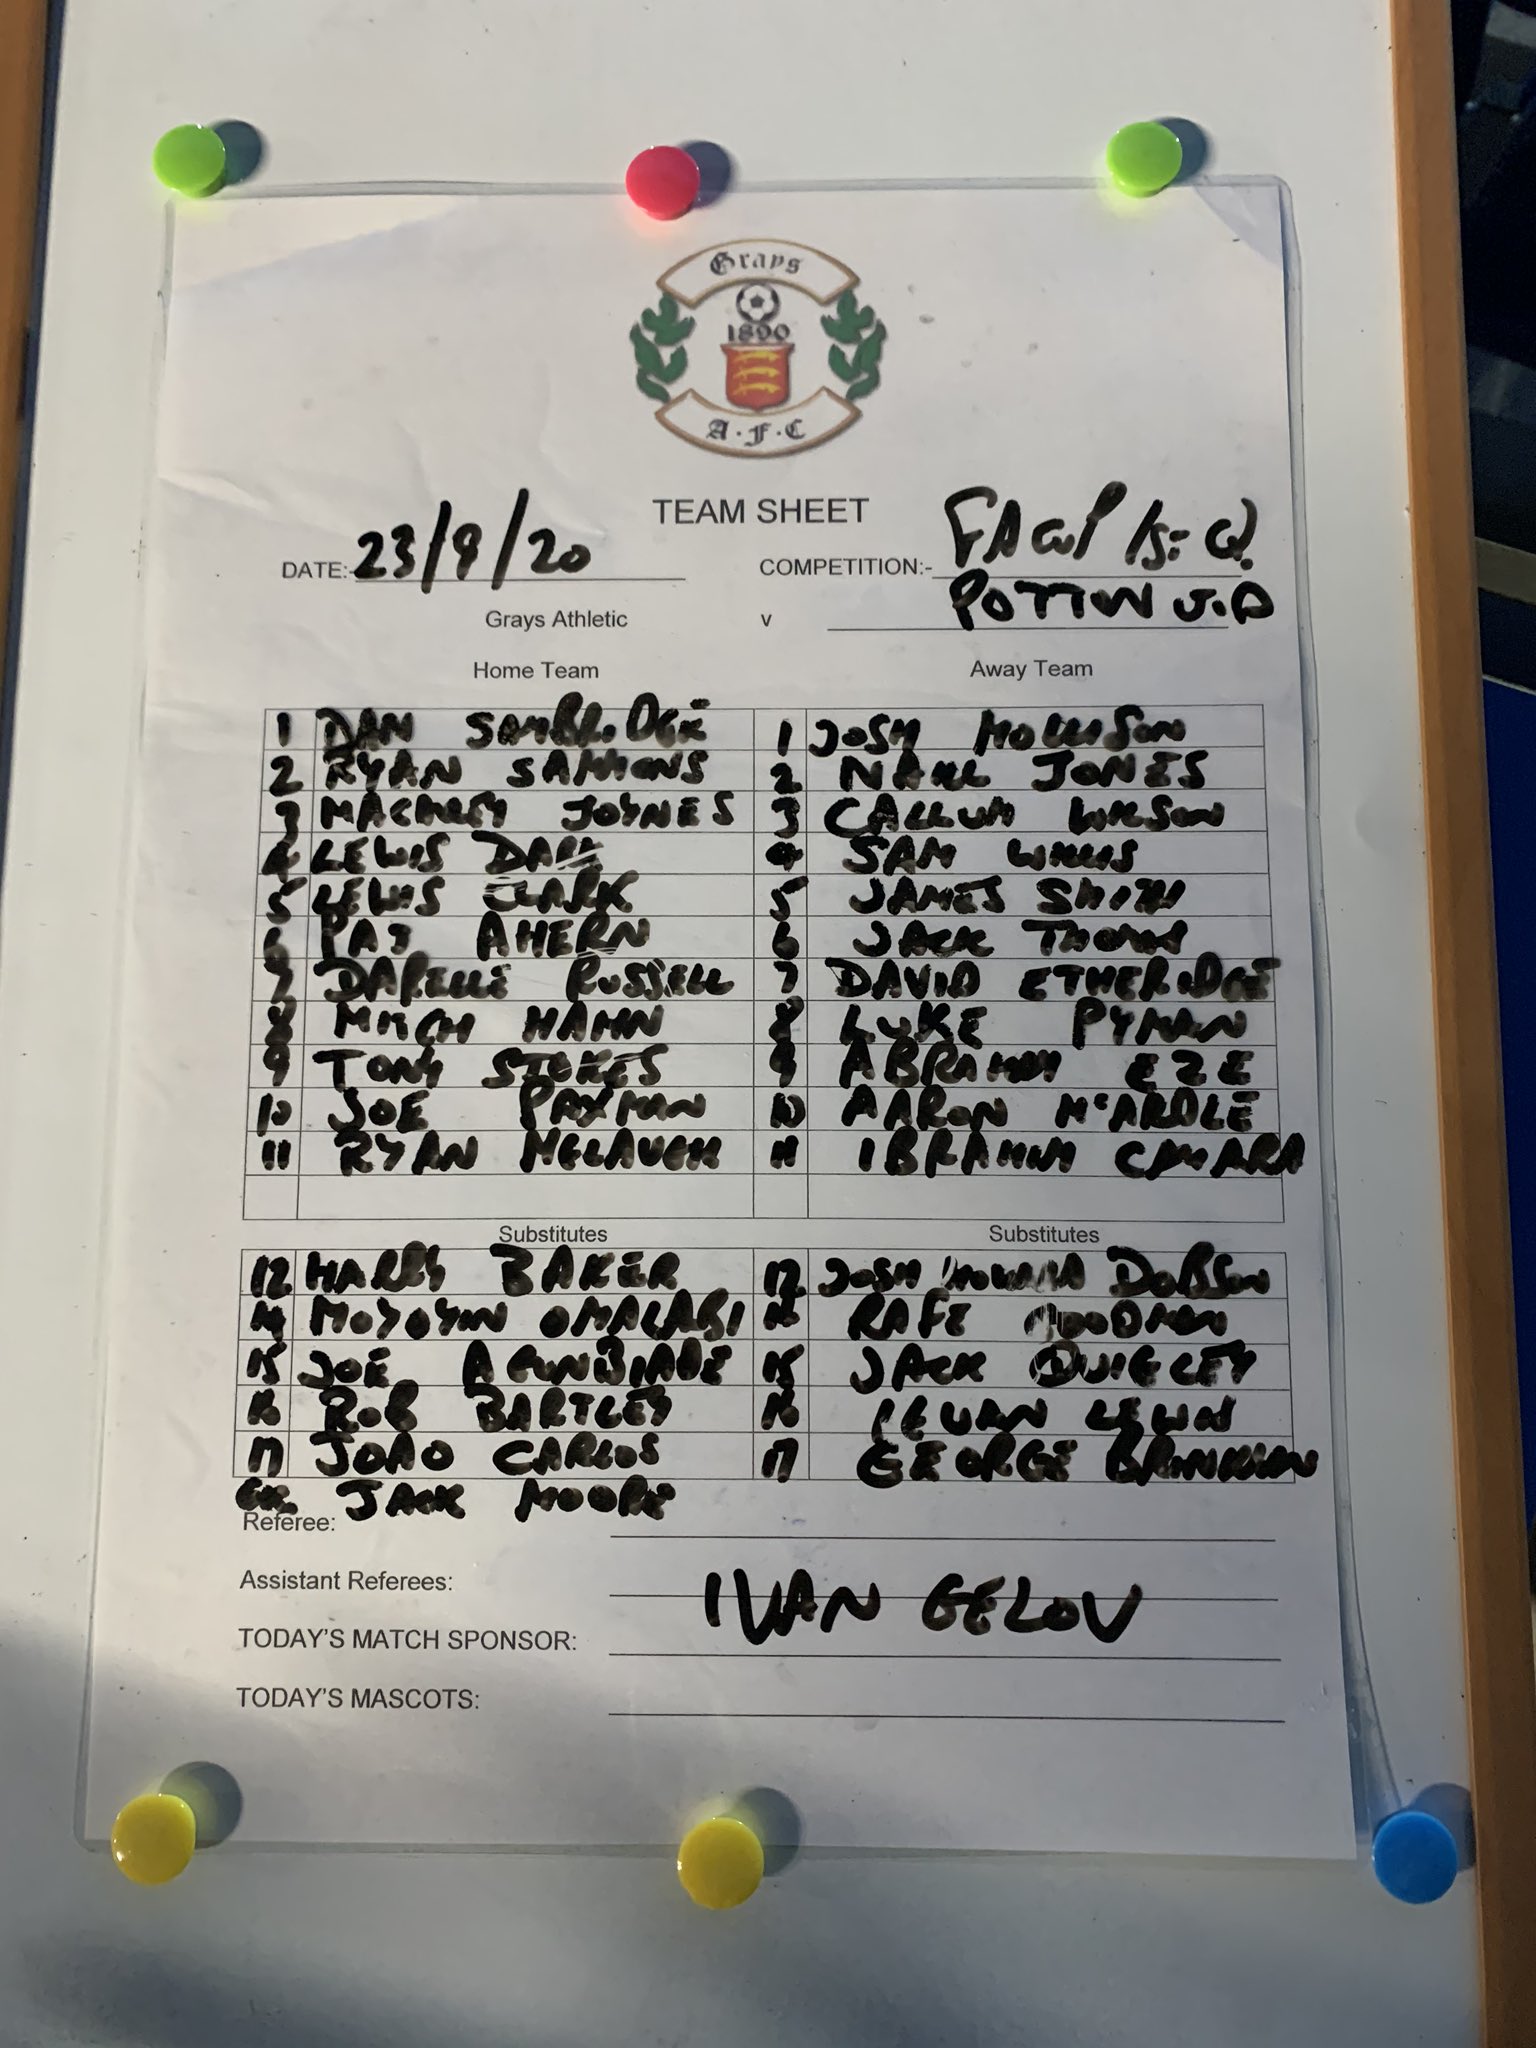 Grays
1890
A·F·C
TEAM SHEET
DATE:- 23/9/20 COMPETITION:- FA CUP 1st Q.
Grays Athletic v POTTON U.D
Home Team Away Team
1 DAN SAMBRIDGE 1 JOSH MOLLISON
2 RYAN SAMMONS 2 JONES
3 MACKLEY JOYNES 3 CALLUM
4 LEWIS DARK 4 SAM WILLIS
5 LEWIS CLARK 5 JAMES SMITH
6 PAT AHERN 6 JACK THOMAS
7 DARELLE RUSSELL 7 DAVID ETHERIDGE
8 MITCH HAHN 8 LUKE PYMAN
9 TONY STOKES 9 ABRAHAM EZE
10 JOE PAXMAN 10 AARON McARDLE
11 RYAN MGLAUGH 11 IBRAHIM CAMARA
Substitutes Substitutes
12 HARRY BAKER 12 JOSH HOWARD DOBSON
14 MOYOYIN OMALABI 14 RAFE GOODMAN
15 JOE AGUNBIADE 15 JACK QUIGLEY
16 ROB BARTLEY 16 IEUAN LEWIS
17 JOAO CARLOS 17 GEORGE BRINKMAN
GK. JACK MOORE
Referee:
Assistant Referees:
TODAY'S MATCH SPONSOR: IVAN GELOV
TODAY'S MASCOTS: